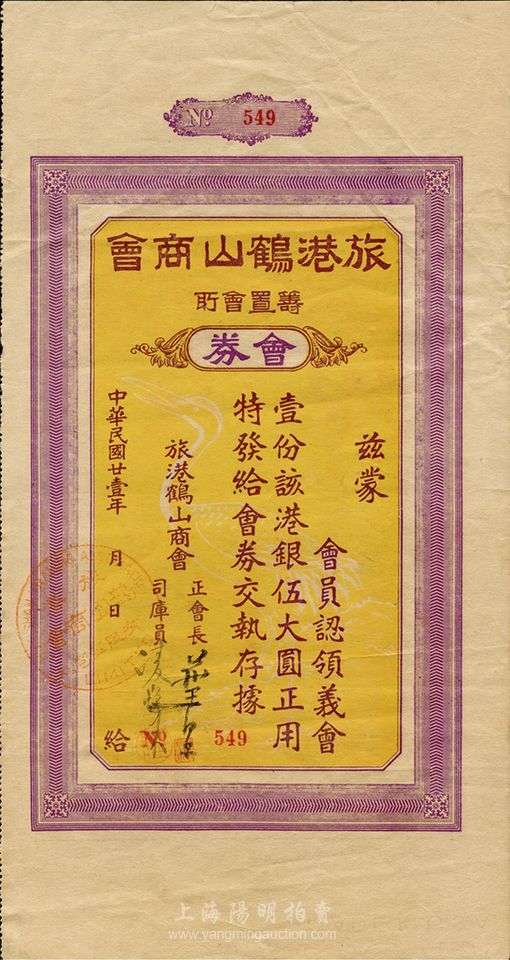 Nº 549
旅港鶴山商會
籌置會所
會券
茲蒙
會員認領義會
壹份該港銀伍大圓正用
特發給會券交執存據
旅港鶴山商會
正會長
司庫員
中華民國廿壹年 月 日 給
Nº 549
上海陽明拍賣
www.yangmingauction.com